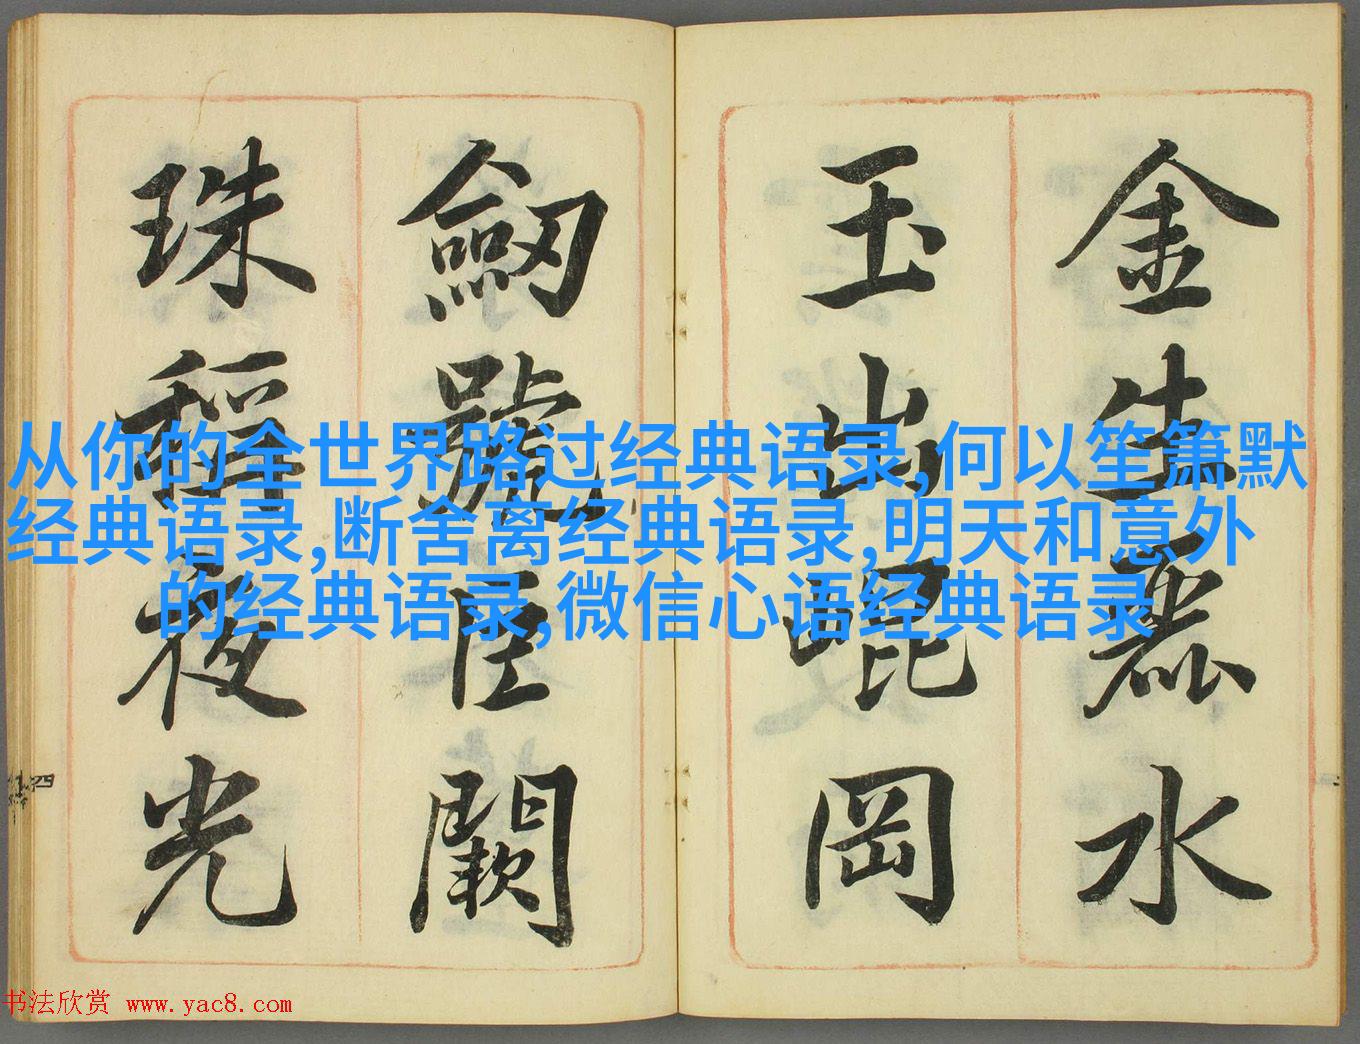 金生麗水
玉出崐岡
劒號巨闕
珠稱夜光
从你的全世界路过经典语录,何以笙箫默
经典语录,断舍离经典语录,明天和意外
的经典语录,微信心语经典语录
书法欣赏 www.yac8.com